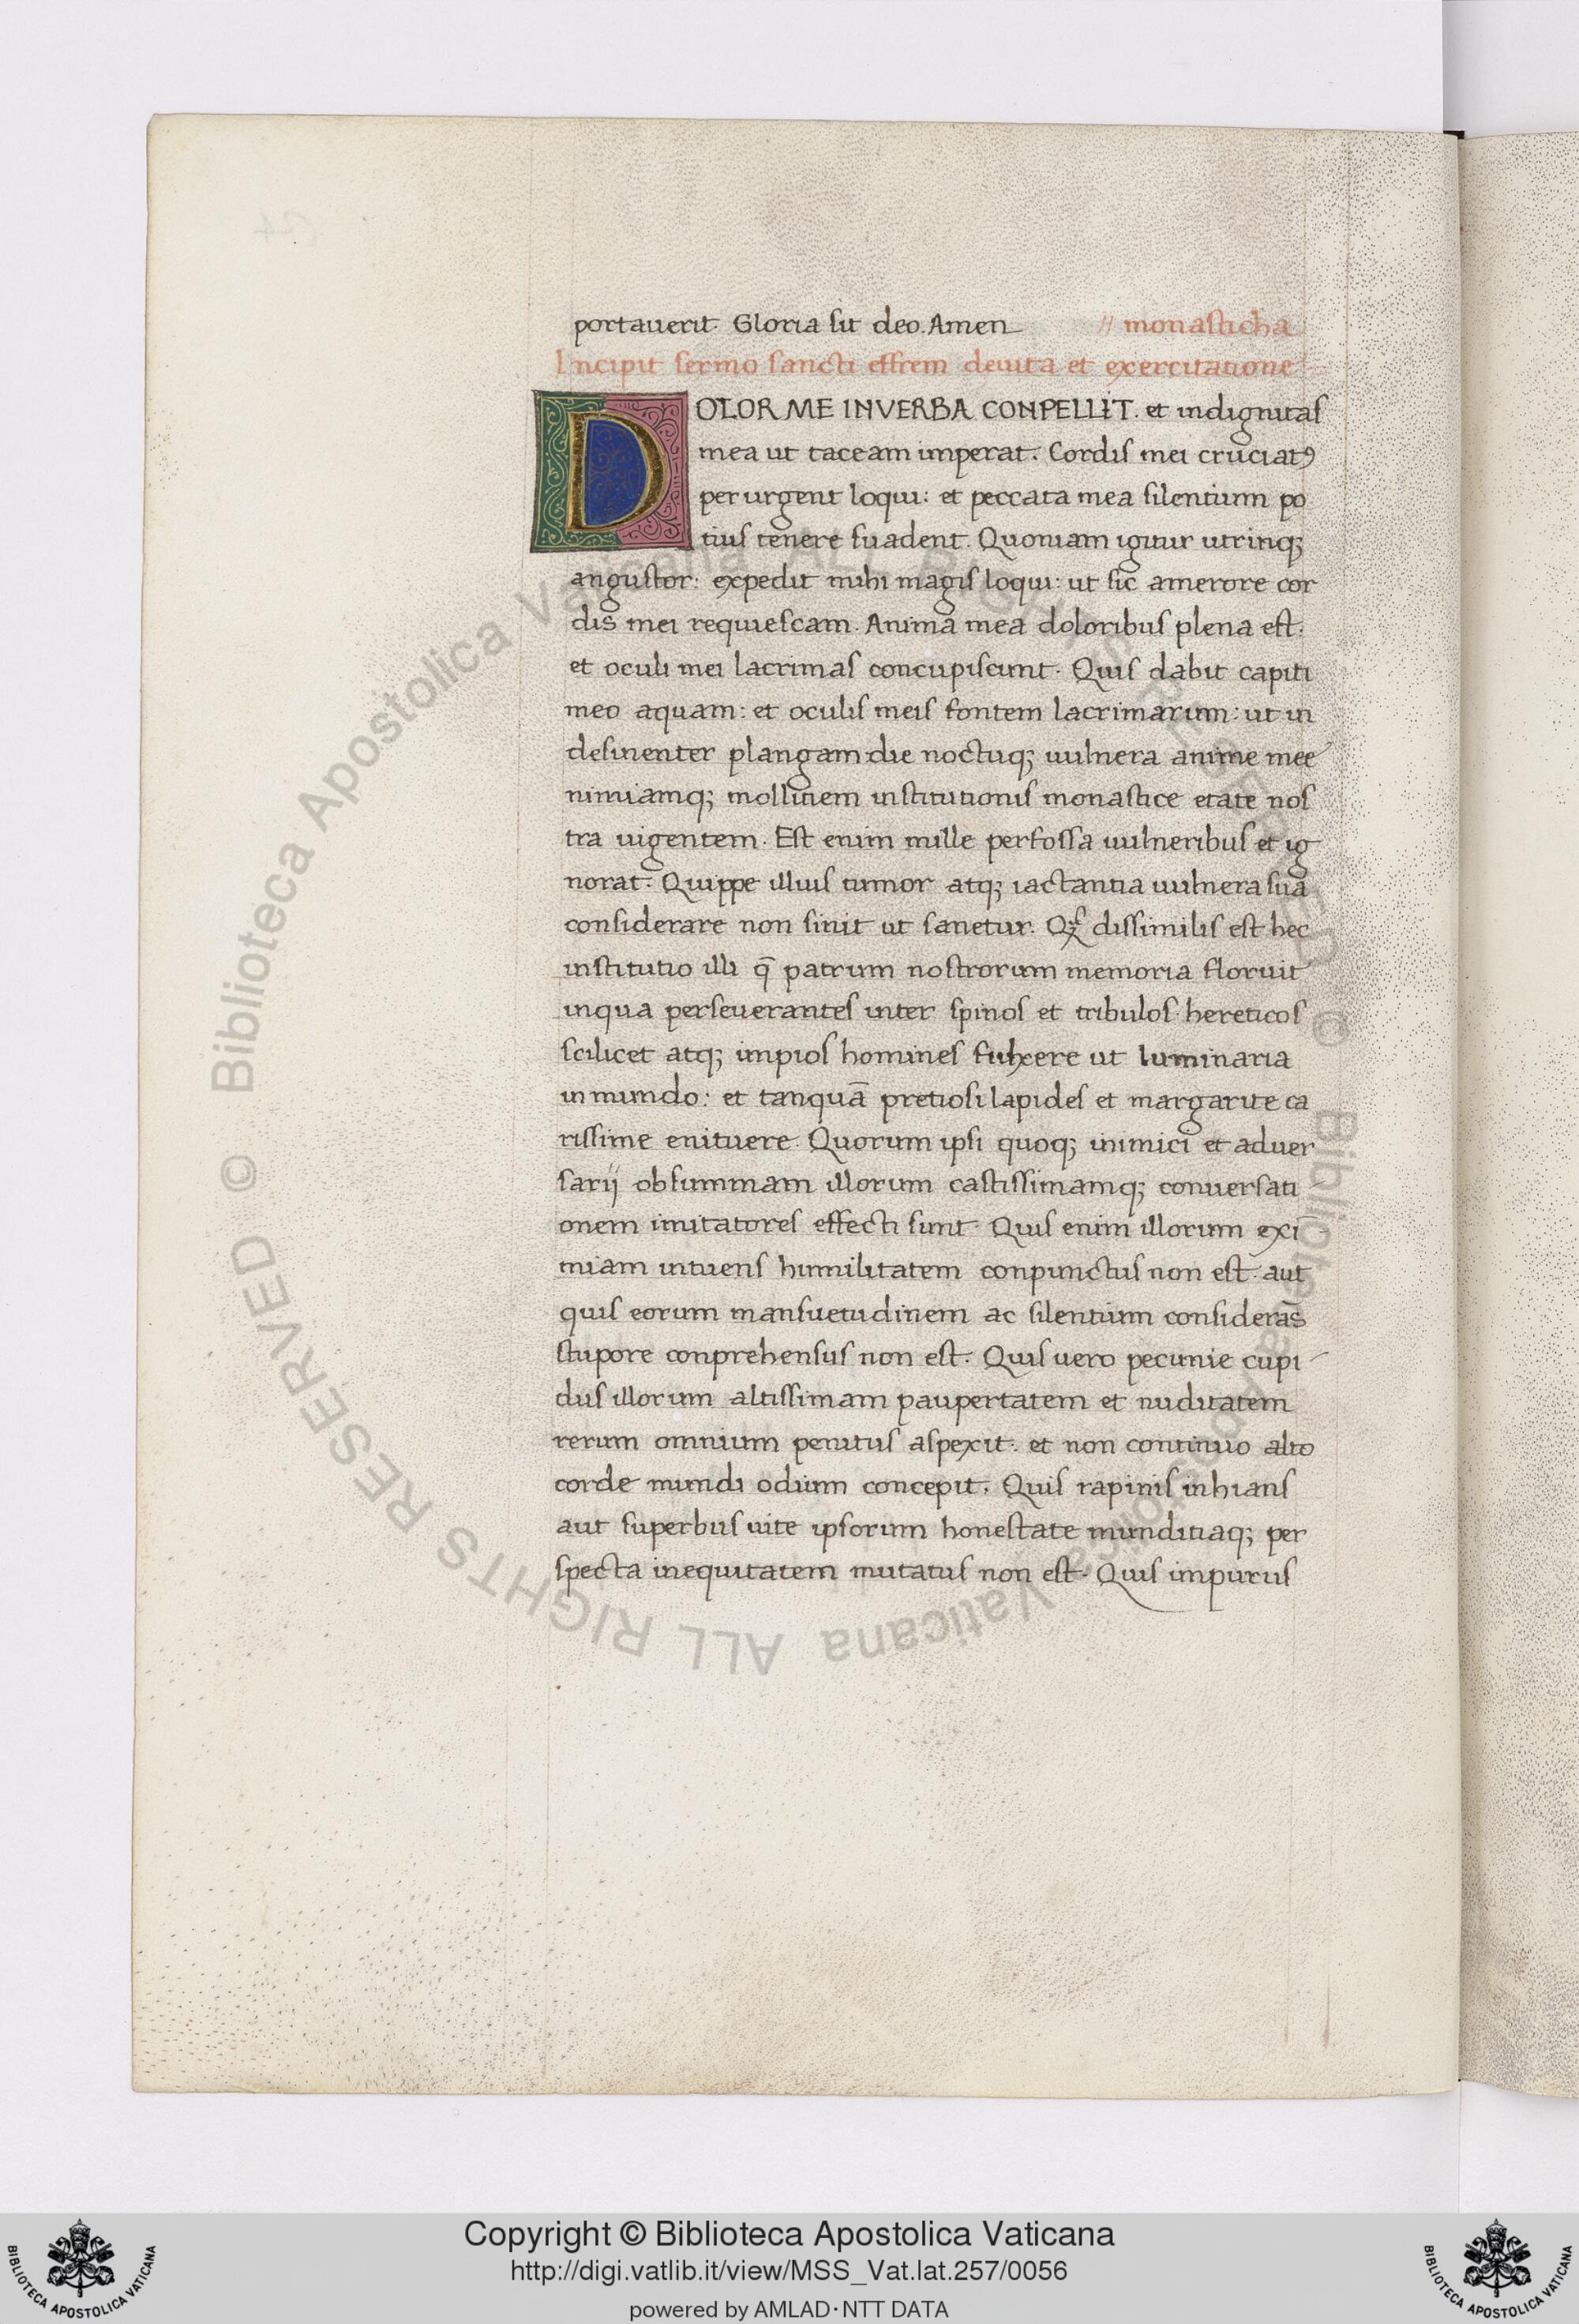 portauerit. Gloria sit deo. Amen // monasticha
Incipit sermo sancti effrem deuita et exercitatione
DOLOR ME INVERBA CONPELLIT. et indignitas
mea ut taceam imperat. Cordis mei cruciatꝰ
perurgent loqui: et peccata mea silentium po
tius tenere suadent. Quoniam igitur utrinq;
angustor: expedit mihi magis loqui: ut sic amerore cor
dis mei requiescam. Anima mea doloribus plena est:
et oculi mei lacrimas concupiscunt. Quis dabit capiti
meo aquam: et oculis meis fontem lacrimarum: ut in
desinenter plangam die noctuq; uulnera anime mee
nimiamq; mollitiem institutionis monastice etate nos
tra uigentem. Est enim mille perfossa uulneribus et ig
norat. Quippe illius tumor atq; iactantia uulnera sua
considerare non sinit ut sanetur. dissimilis est hec
institutio illi q̄ patrum nostrorum memoria floruit
inqua perseuerantes inter spinos et tribulos hereticos
scilicet atq; impios homines fulxere ut luminaria
in mundo: et tanquā pretiosi lapides et margarite ca
rissime enituere. Quorum ipsi quoq; inimici et aduer
sarij obsummam illorum castissimamq; conuersati
onem imitatores effecti sunt. Quis enim illorum exi
miam intuens humilitatem conpunctus non est. aut
quis eorum mansuetudinem ac silentium considerās
stupore conprehensus non est. Quis uero pecunie cupi
dus illorum altissimam paupertatem et nuditatem
rerum omnium penitus aspexit. et non continuo alto
corde mundi odium concepit. Quis rapinis inhians
aut superbus uite ipsorum honestate munditiaq; per
specta inequitatem mutatus non est. Quis impurus
Biblioteca Apostolica Vaticana ALL RIGHTS RESERVED ©
Copyright © Biblioteca Apostolica Vaticana
http://digi.vatlib.it/view/MSS_Vat.lat.257/0056
powered by AMLAD·NTT DATA
BIBLIOTECA APOSTOLICA VATICANA
BIBLIOTECA APOSTOLICA VATICANA